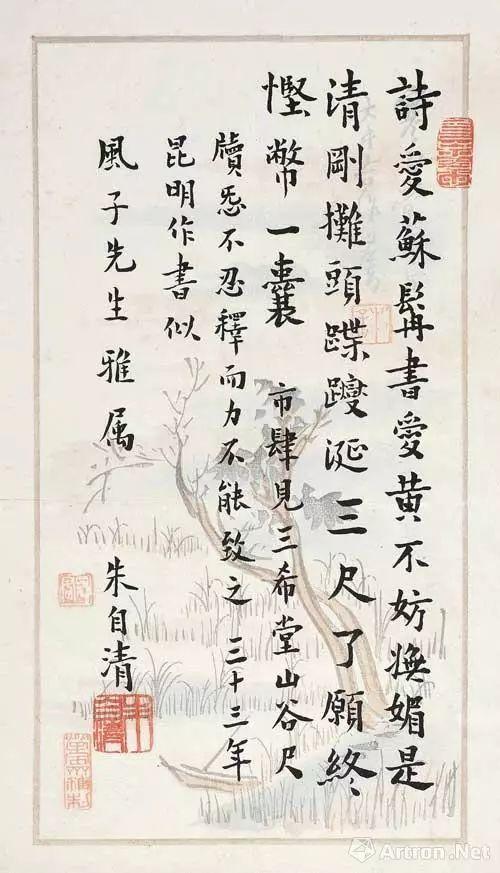 詩愛蘇髯書愛黃不妨嫵媚是
清剛攤頭蹀躞涎三尺了願終
慳幣一囊 市肆見三希堂山谷尺
牘愛不忍釋而力不能致之 三十三年
昆明作書似
風子先生雅属
朱自清
Artron.Net